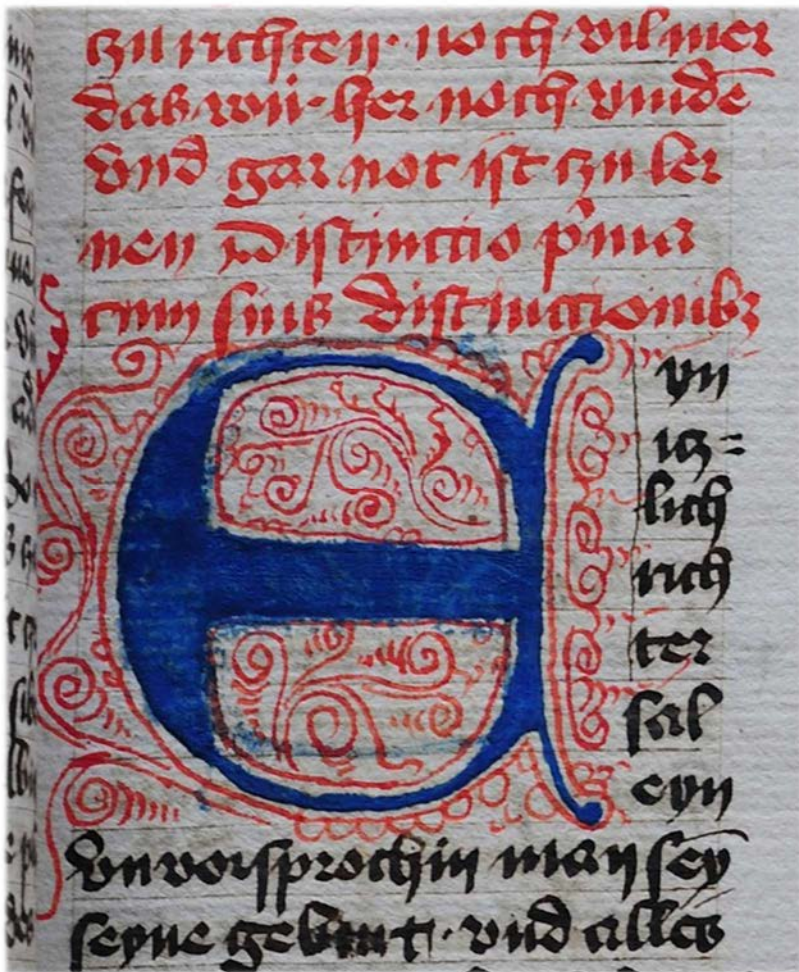 czu richten· noch vil mer
das wir· her noch vindē
Vnd gar not ist czu ler
nen Distinctio p'ma
cum suis distinccionibꝫ
E yn
icz=
lich
rich
ter
sal
eyn
Vnvorsprochin man sey
seyne geburt· vnd alles